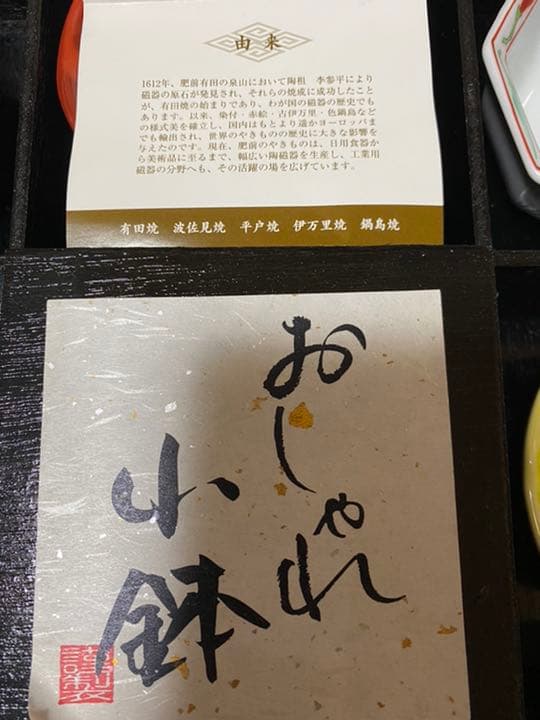 由来
1612年、肥前有田の泉山において陶祖　李参平により
磁器の原石が発見され、それらの焼成に成功したこと
が、有田焼の始まりであり、わが国の磁器の歴史でも
あります。以来、染付・赤絵・古伊万里・色鍋島など
の様式美を確立し、国内はもとより遥かヨーロッパま
でも輸出され、世界のやきものの歴史に大きな影響を
与えたのです。現在、肥前のやきものは、日用食器か
ら美術品に至るまで、幅広い陶磁器を生産し、工業用
磁器の分野へも、その活躍の場を広げています。
有田焼　波佐見焼　平戸焼　伊万里焼　鍋島焼
おしゃれ
小鉢
謹製